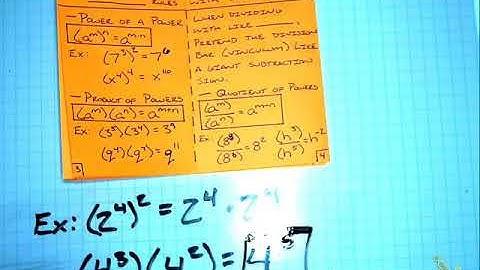 RULES
— POWER OF A POWER
(aᵐ)ⁿ = aᵐ·ⁿ
Ex: (7³)² = 7⁶
(x⁴)⁴ = x¹⁶
— PRODUCT OF POWERS
(aᵐ)(aⁿ) = aᵐ⁺ⁿ
Ex: (3⁵)(3⁴) = 3⁹
(q⁴)(q⁷) = q¹¹
3
WHEN DIVIDING
WITH LIKE ______,
PRETEND THE DIVISION
BAR (VINCULUM) LIKE
A GIANT SUBTRACTION
SIGN.
— QUOTIENT OF POWERS
(aᵐ)/(aⁿ) = aᵐ⁻ⁿ
Ex: (8⁸)/(8⁶) = 8² (h³)/(h⁵) = h⁻²
4
Ex: (2⁴)² = 2⁴ · 2⁴
(4³)(4²) = 4⁵